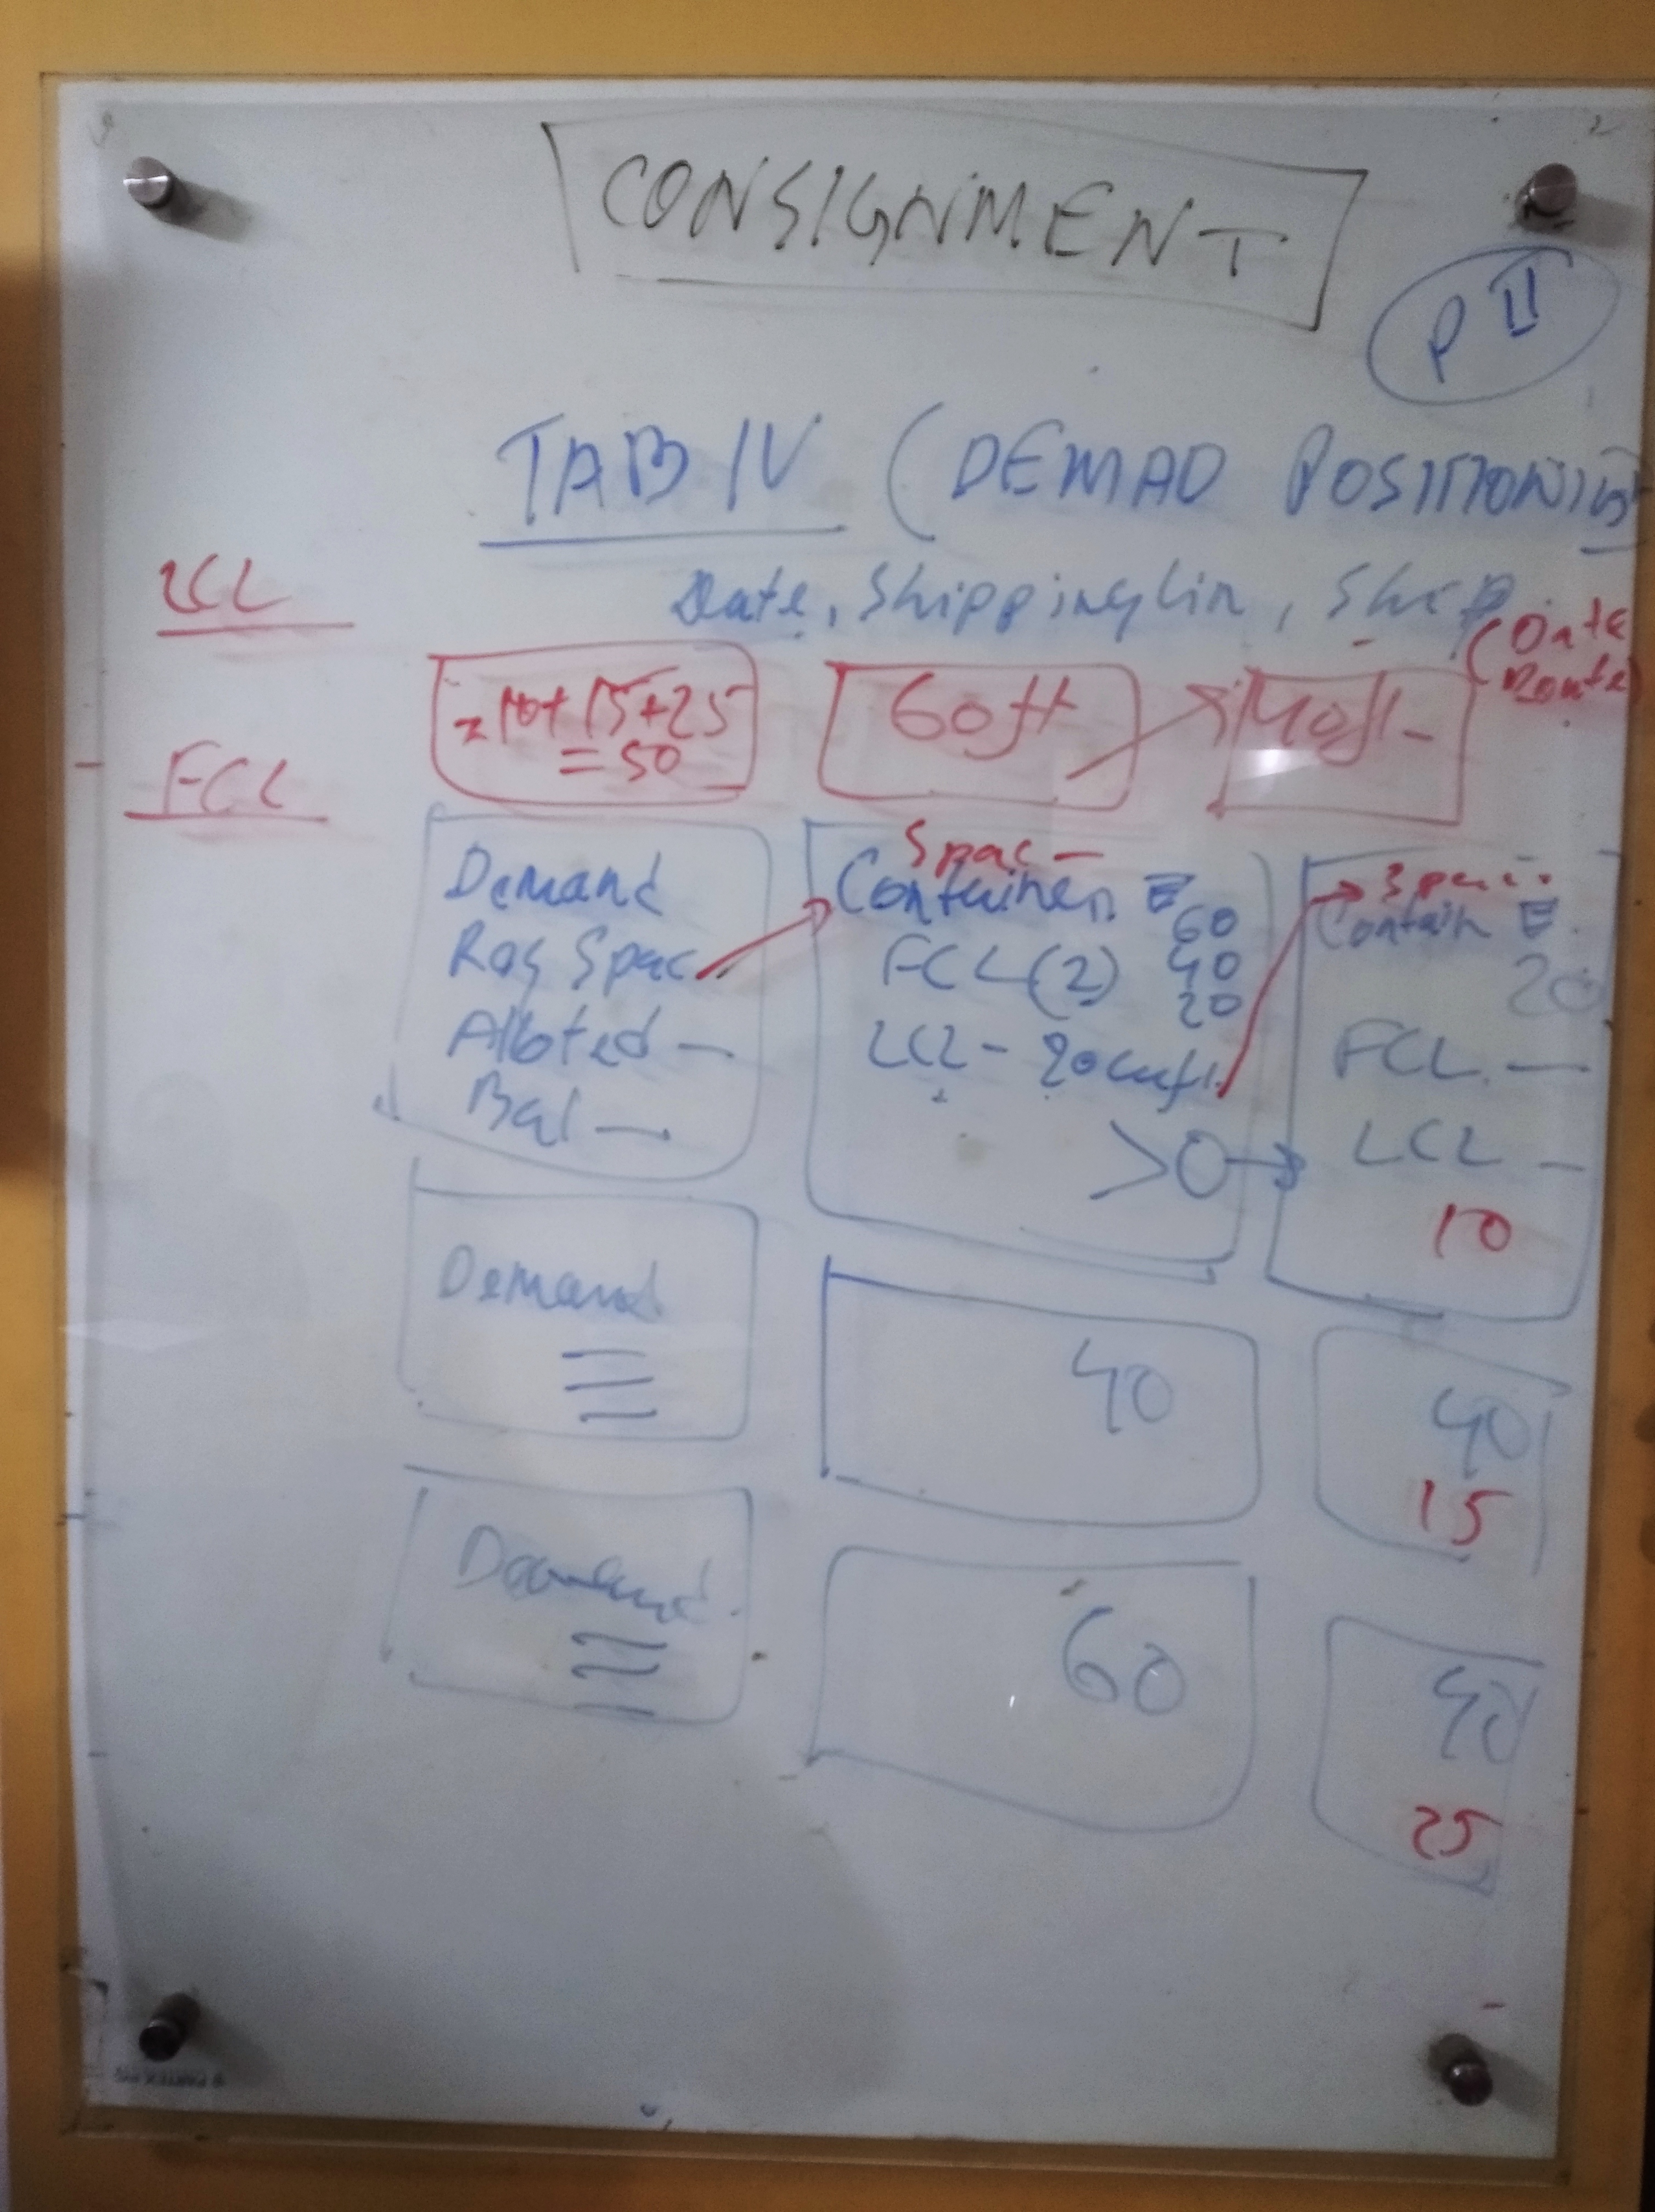 CONSIGNMENT
P II
TAB IV (DEMAD POSITIONING
Date, Shipping Lin, Ship
LCL
(Date
Route)
= 10+15+25
= 50
60ft
40ft
FCL
Demand
Raq Spac
Alloted -
Bal -
Spac -
Container
60
FCL (2) 40
20
LCL - 20 cuft
>0
Contain
20
FCL -
LCL -
10
Demand
40
40
15
Demand
60
40
25